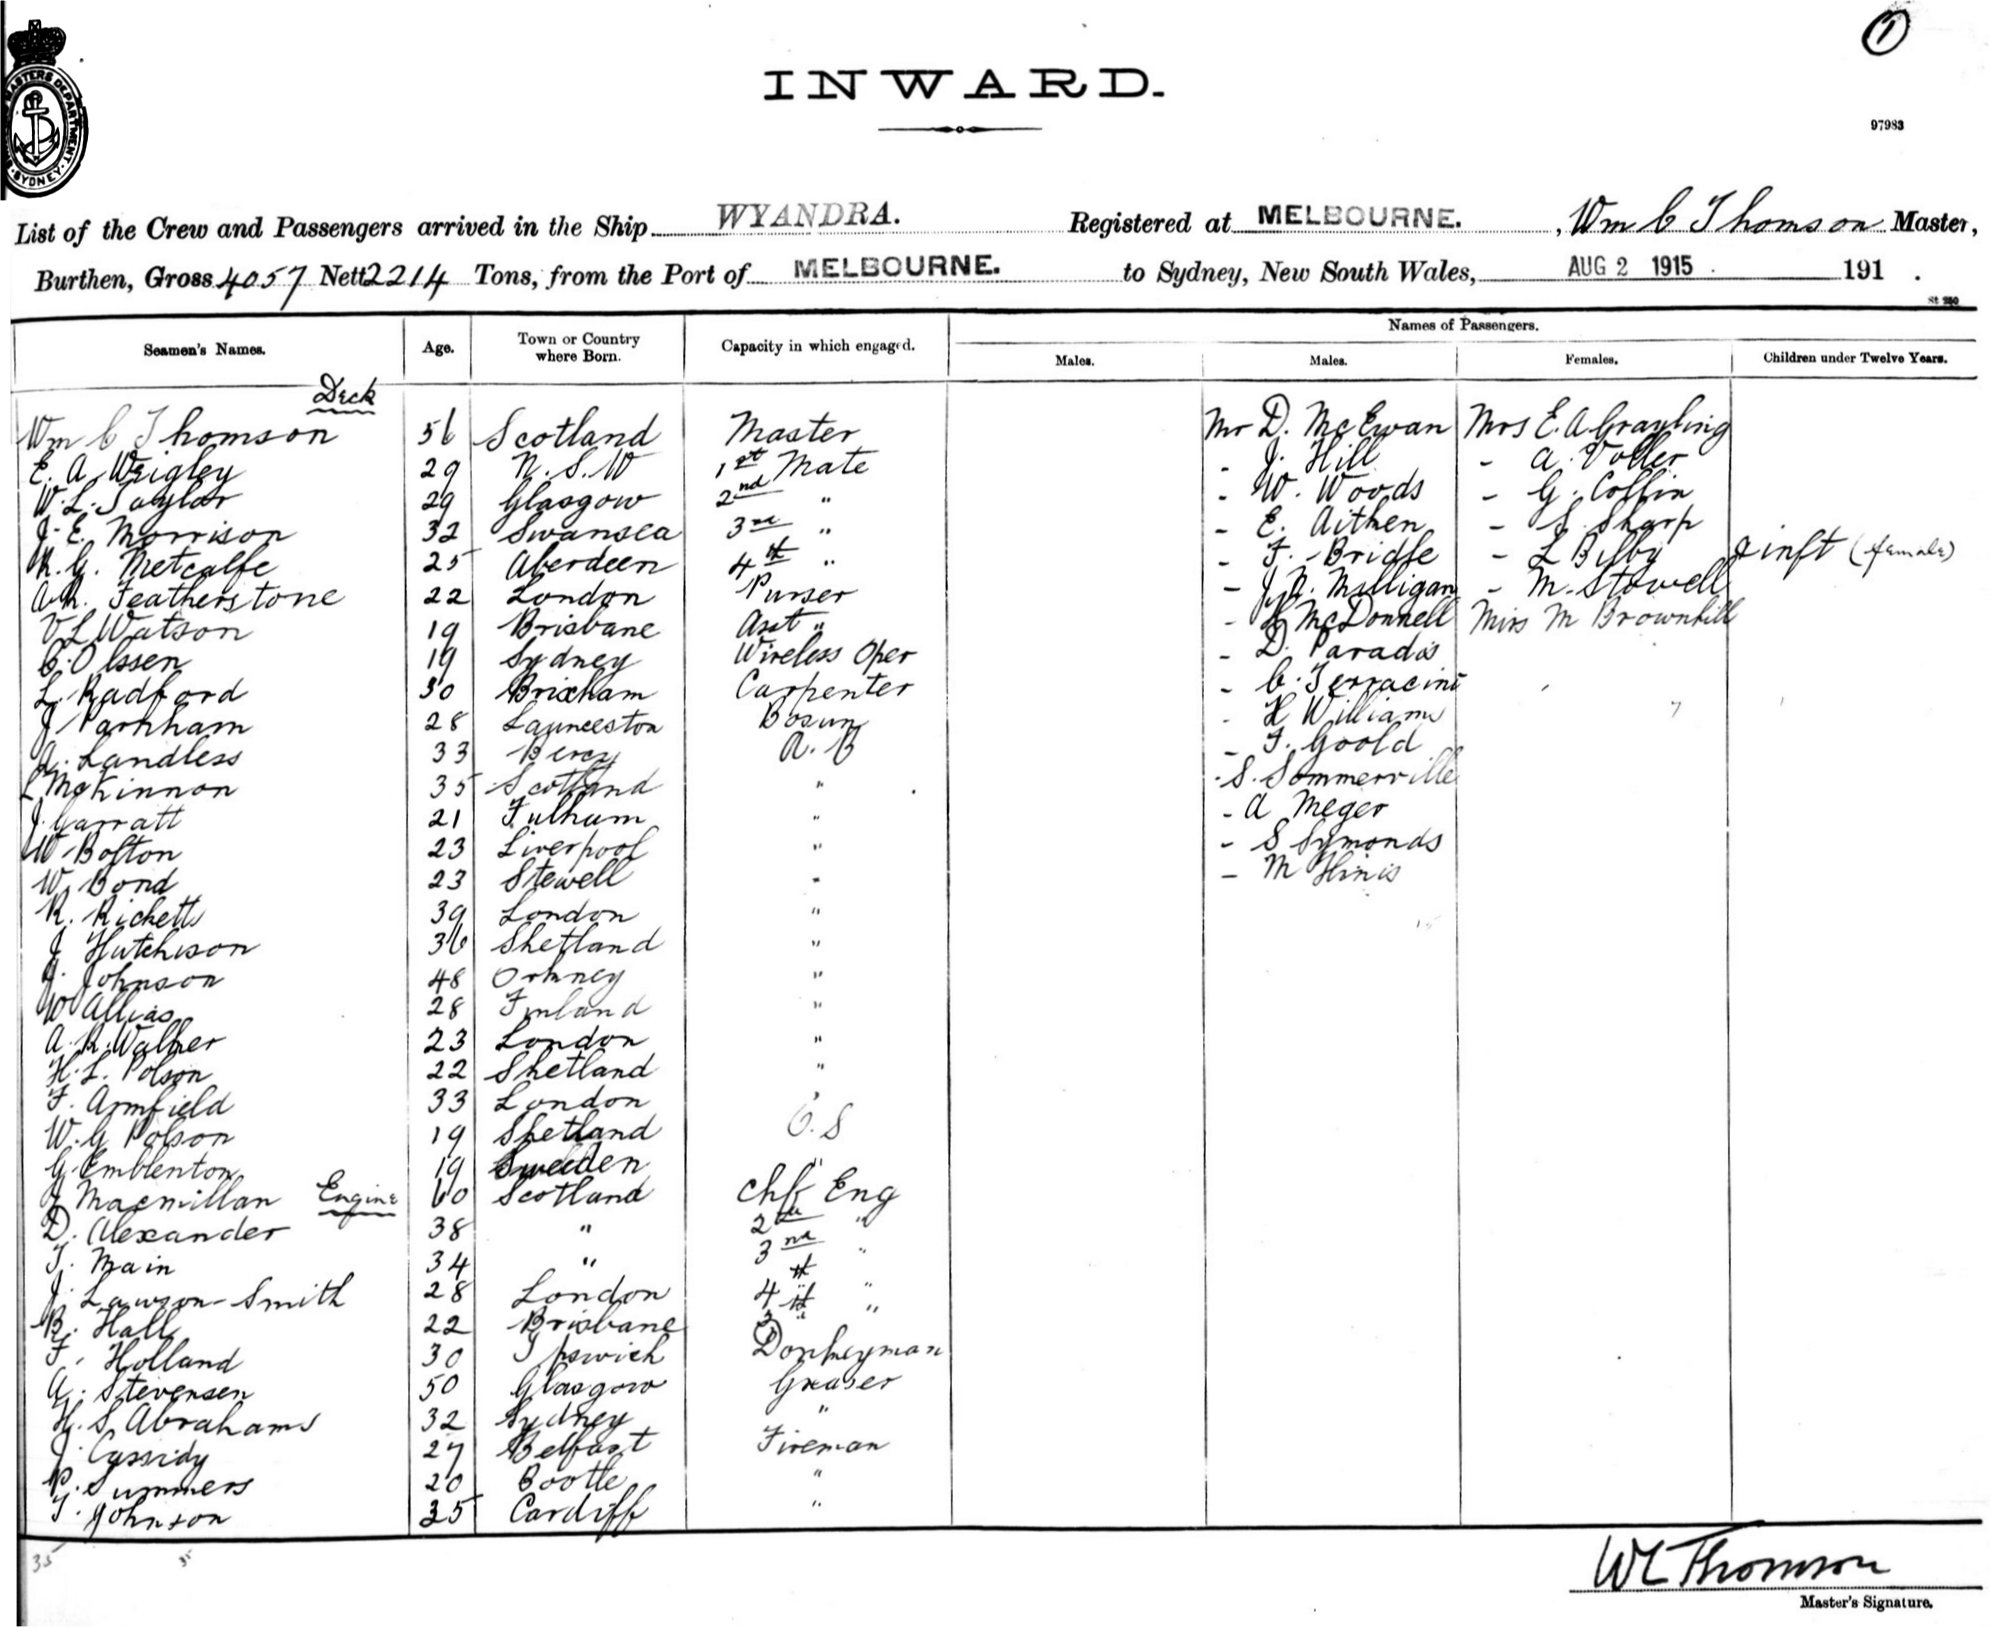 1
INWARD.
97983
MASTERS DEPARTMENT SYDNEY
List of the Crew and Passengers arrived in the Ship WYANDRA. Registered at MELBOURNE., Wm C Thomson Master,
Burthen, Gross 4057 Nett 2214 Tons, from the Port of MELBOURNE. to Sydney, New South Wales, AUG 2 1915 191 .
St 250
Names of Passengers.
Seamen's Names. Age. Town or Country where Born. Capacity in which engaged. Males. Males. Females. Children under Twelve Years.
Deck
Wm C Thomson 56 Scotland Master Mr D. McEwan Mrs E. A Grayling
E. A. Wrigley 29 N. S. W 1st Mate - J. Hill - A. Voller
W. L. Taylor 29 Glasgow 2nd " - W. Woods - G. Coffin
J. E. Morrison 32 Swansea 3rd " - E. Aitken - S. Sharp
Metcalfe 25 Aberdeen 4th " - F. Bridge - L Bilby & inft (female)
Featherstone 22 London Purser - J. N. Milligan - M. Stowell
V L Watson 19 Brisbane Asst " - McDonnell Miss M Brownhill
C. Olssen 19 Sydney Wireless Oper - D. Paradis
L. Radford 30 Brixham Carpenter - C. Terracini
J Parnham 28 Launceston Bosun - H Williams
A. Landless 33 A. B - F. Goold
McKinnon 35 Scotland " - S. Sommerville
J. Garratt 21 Fulham " - A Meger
W Bolton 23 Liverpool " - S Symonds
W. Bond 23 Stewell " - M Hinis
R. Ricketts 39 London "
J Hutchison 36 Shetland "
J. Johnson 48 Orkney "
W Allias 28 Finland "
A. R. Walker 23 London "
H. L. Polson 22 Shetland "
F. Armfield 33 London "
W. G Polson 19 Shetland O. S
G. Emblenton 19 Sweeden "
J Macmillan Engine 60 Scotland Chf Eng
D. Alexander 38 " 2nd "
T. Main 34 " 3rd "
J. Lawson-Smith 28 London 4th "
B. Hall 22 Brisbane "
F. Holland 30 Ipswich Donkeyman
A. Stevensen 50 Glasgow Greaser
H. S. Abrahams 32 Sydney "
J. Cassidy 27 Belfast Fireman
P. Summers 20 Bootle "
T. Johnson 35 Cardiff "
35 35
WC Thomson
Master's Signature.